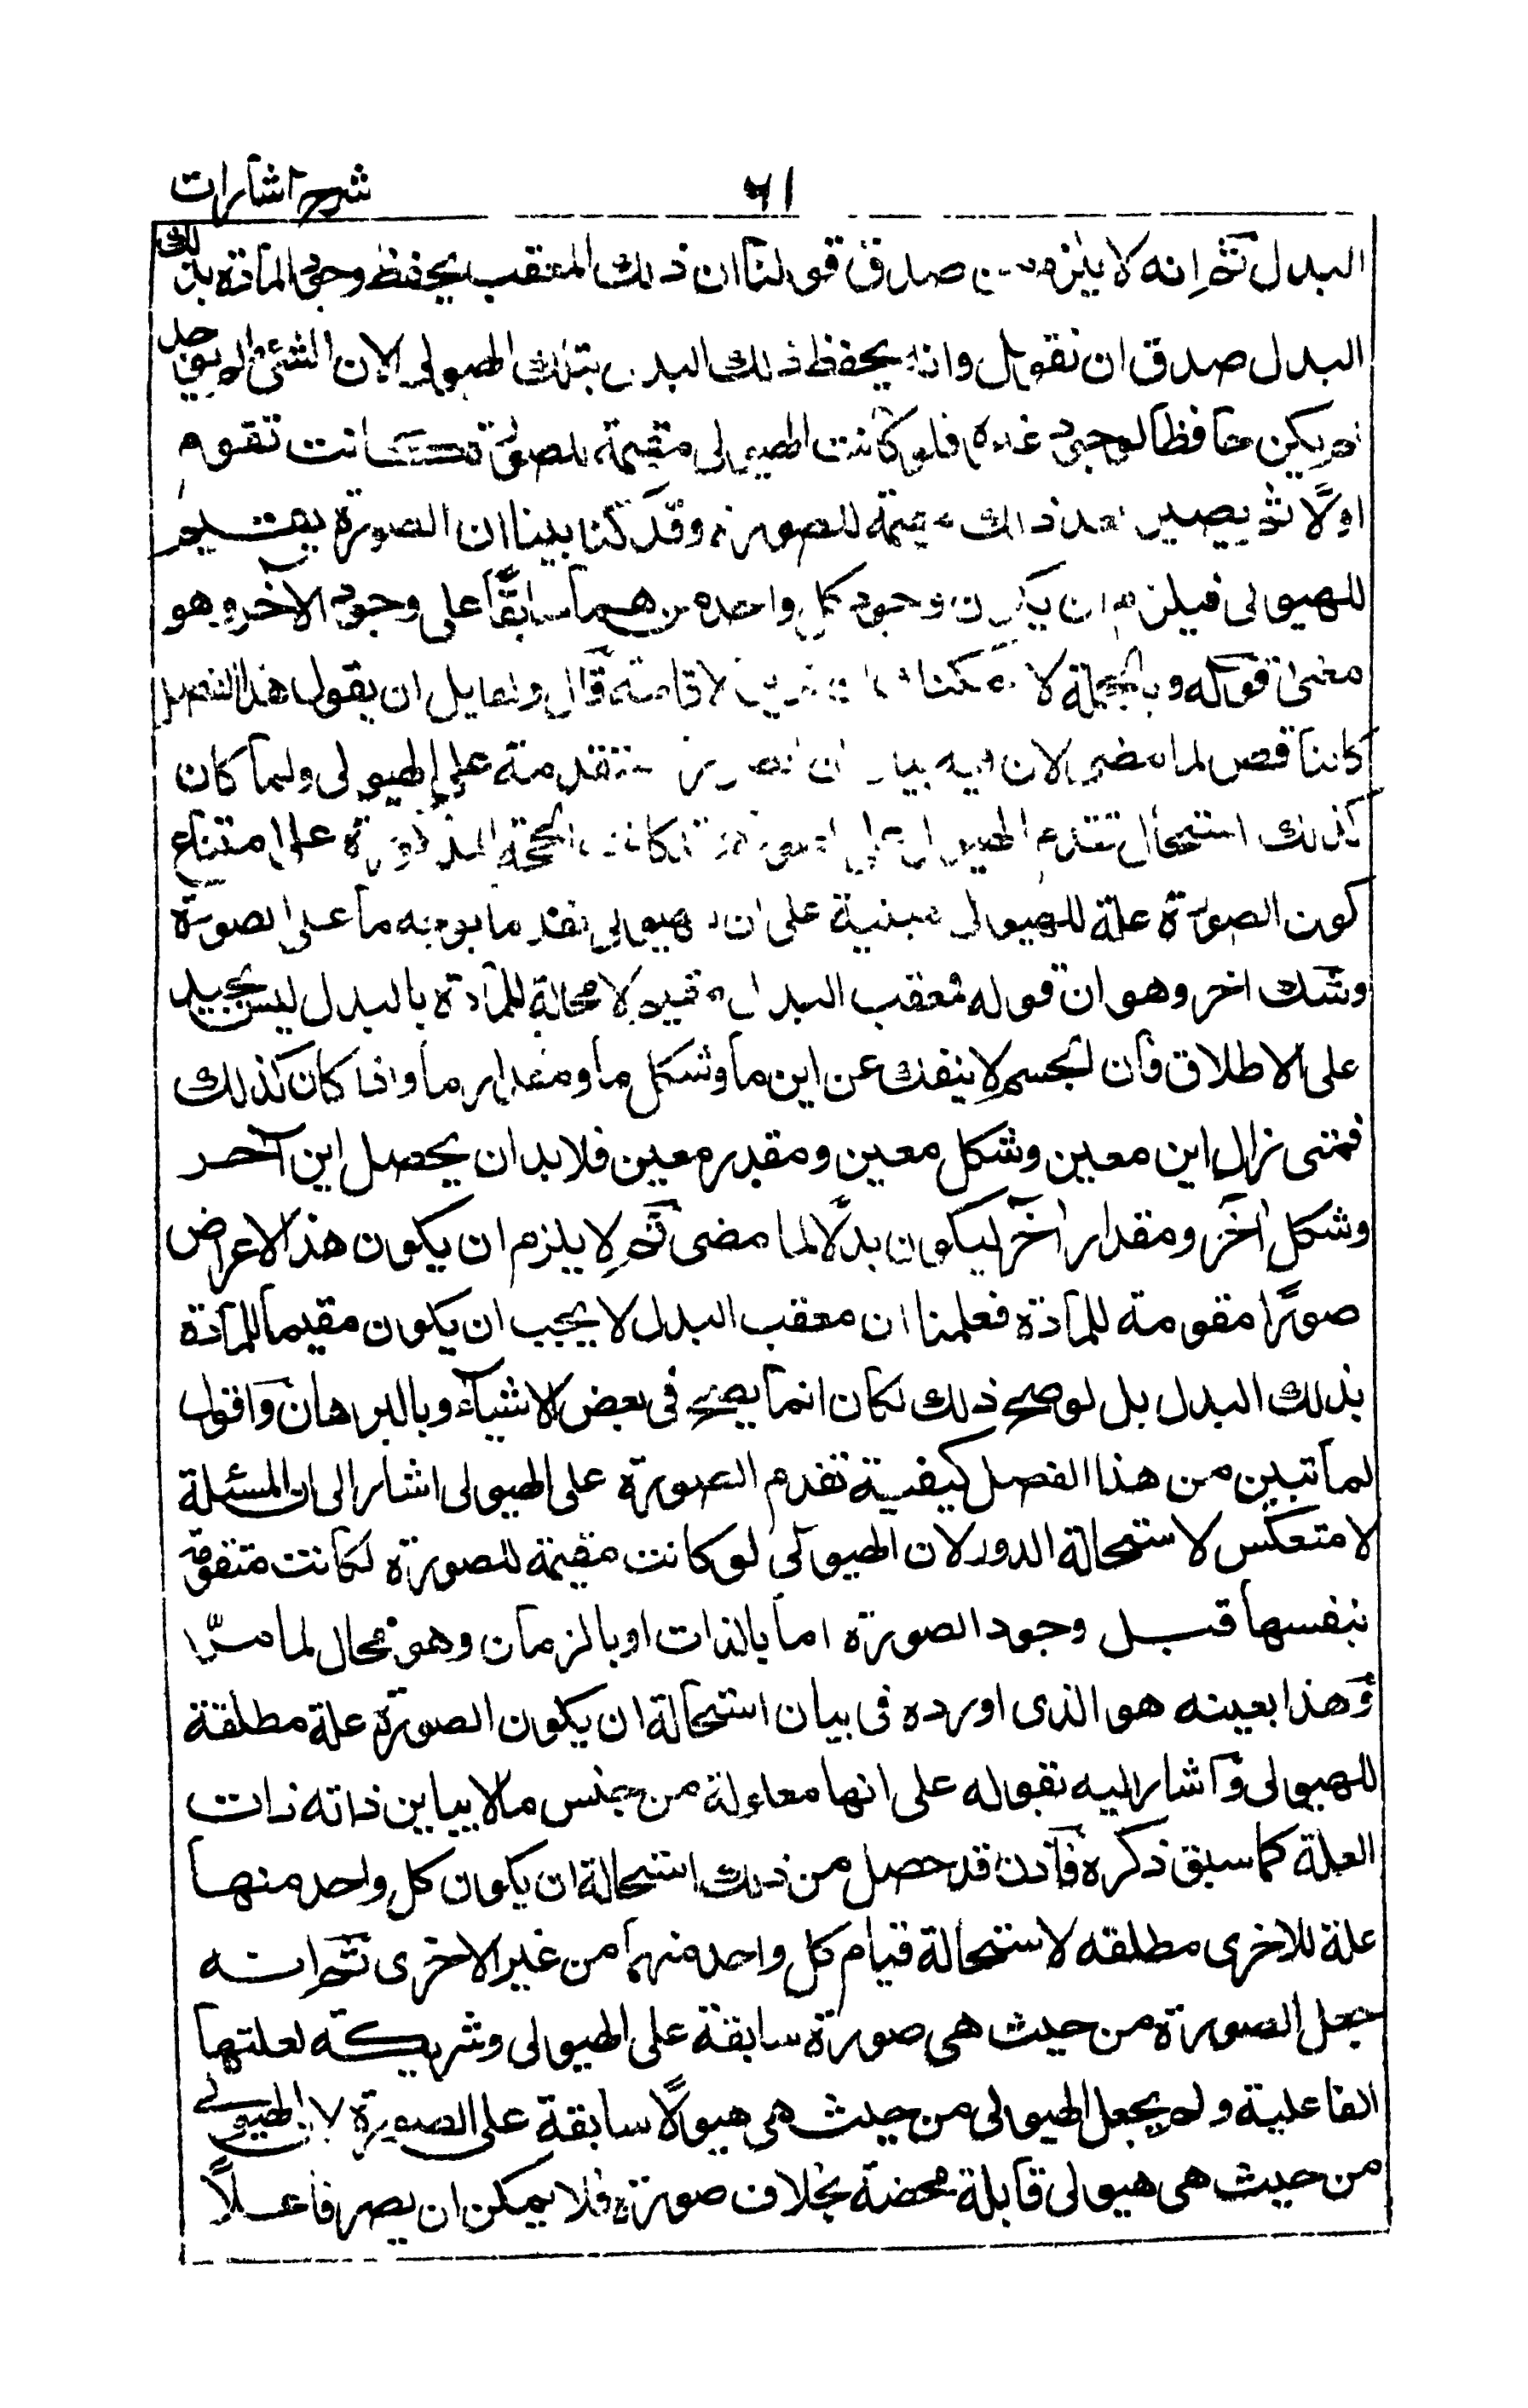 شرح اشارات
٦١
البدل ثم انه لا يلزم من صدق قولنا ان ذلك المعقب يحفظ وجود المادة بذلك
البدل صدق ان نقول وانه يحفظ ذلك البدل بتلك الهيولى لان الشئ ما لم يوجد
لم يكن حافظا لوجود غيره فلو كانت الهيولى مقيمة للصورة كانت تقوم
اولا ثم يصير بعد ذلك مقيمة للصورة وقد كنا بينا ان الصورة
للهيولى فيلزم ان يكون وجود كل واحد منهما سابقا على وجود الآخر وهو
معنى قوله وبالجملة لا يمكنك ان الاقامة قال ولقايل ان يقول هذا الفصل
كالناقص لما مضى لان فيه بيان ان الصورة متقدمة على الهيولى ولما كان
كذلك استحال تقدم الهيولى على الصورة كانت الحجة المذكورة على امتناع
كون الصورة علة للهيولى مبنية على ان الهيولى تقدما بوجه ما على الصورة
وشك اخر وهو ان قوله معقب البدل مقيم لا محالة للمادة بالبدل ليس بجيد
على الاطلاق فان الجسم لا ينفك عن اين ما وشكل ما ومقدار ما واذا كان كذلك
فمتى زال اين معين وشكل معين ومقدر معين فلا بد ان يحصل اين آخر
وشكل اخر ومقدار اخر ليكون بدلا لما مضى ثم لا يلزم ان يكون هذ الاعراض
صورا مقومة للمادة فعلمنا ان معقب البدل لا يجب ان يكون مقيما للمادة
بذلك البدل بل لو صح ذلك لكان انما يصح فى بعض الاشياء وبالبرهان واقول
لما تبين من هذا الفصل كيفية تقدم الصورة على الهيولى اشار الى ان المسئلة
لا متعكس لاستحالة الدور لان الهيولى لو كانت مقيمة للصورة لكانت متقومة
بنفسها قبل وجود الصورة اما بالذات او بالزمان وهو محال لما مرّ
وهذا بعينه هو الذى اورده فى بيان استحالة ان يكون الصورة علة مطلقة
للهيولى واشار اليه بقوله على انها معلولة من جنس ما لا يباين ذاته ذات
العلة كما سبق ذكره فاذن قد حصل من ذلك استحالة ان يكون كل واحد منها
علة للاخرى مطلقه لاستحالة قيام كل واحد منهما من غير الاخرى ثم انه
جعل الصورة من حيث هى صورة سابقة على الهيولى وشريكة لعلتها
الفاعلية ولم يجعل الهيولى من حيث هى هيولا سابقة على الصورة لان الهيولى
من حيث هى هيولى قابلة محضة بخلاف صورة فلا يمكن ان يصر فاعلا